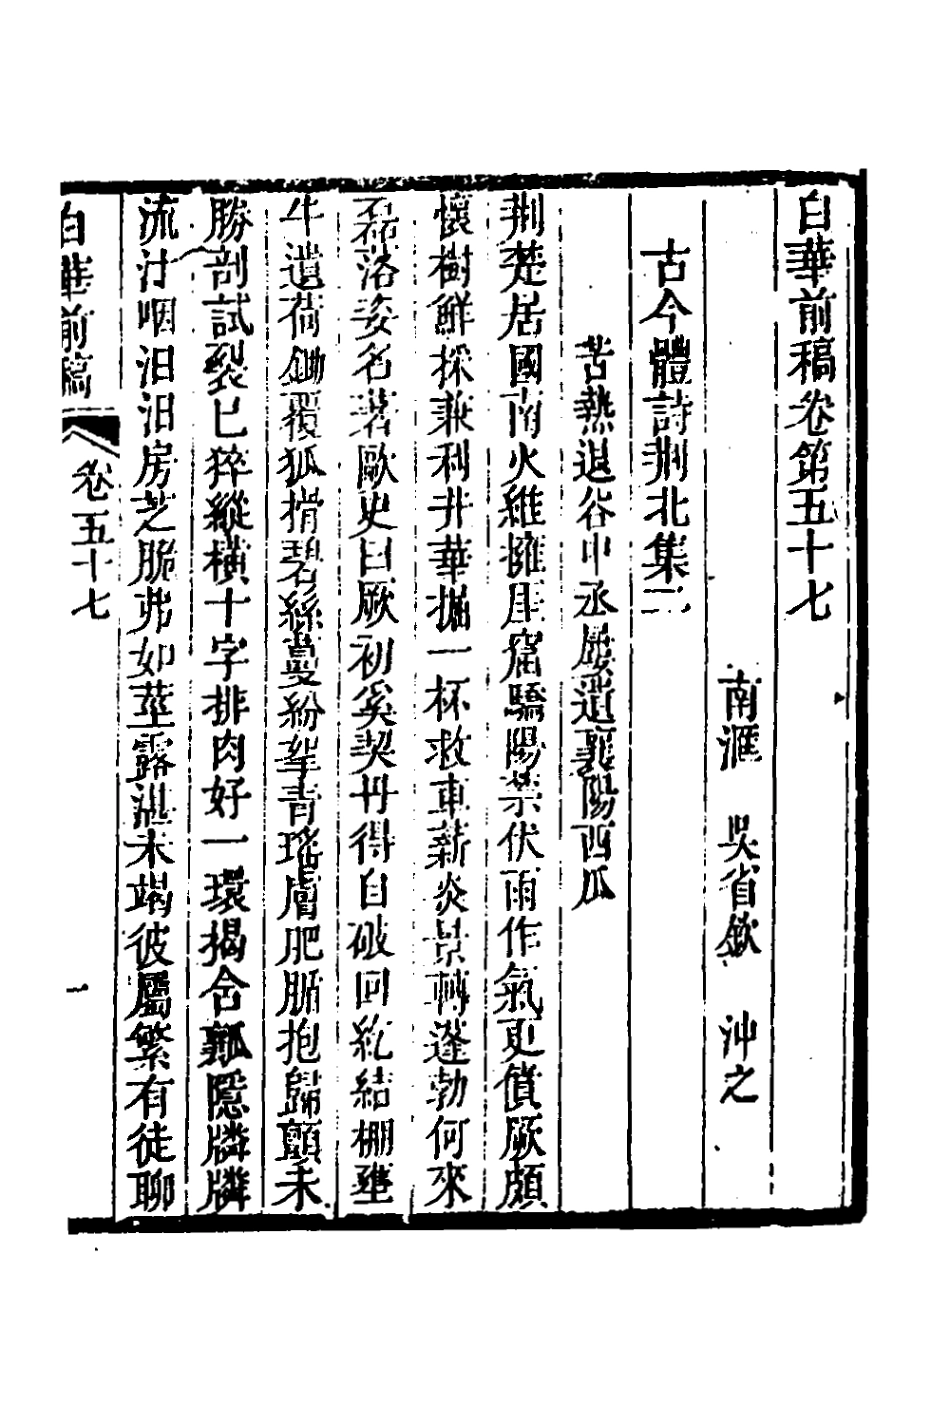 白華前稿卷第五十七
南滙 吳省欽 沖之
古今體詩荆北集二
苦熱退谷中丞屢遺襄陽西瓜
荆楚居國南火維擁厓窟驕陽禁伏雨作氣更僨厥頗
懷樹鮮採兼利井華掘一杯救車薪炎景轉蓬勃何來
磊落姿名著歐史曰厥初奚契丹得自破回紇結棚壅
牛遺荷鋤覆狐搰碧絲蔓紛挐青瑤膚肥腯抱歸顫未
勝剖試裂已猝縱橫十字排肉好一環揭含瓤隱牆牆
流汁咽汩汩房芝脆弗如莖露湛未竭彼屬繁有徒聊
白華前稿
卷五十七
一